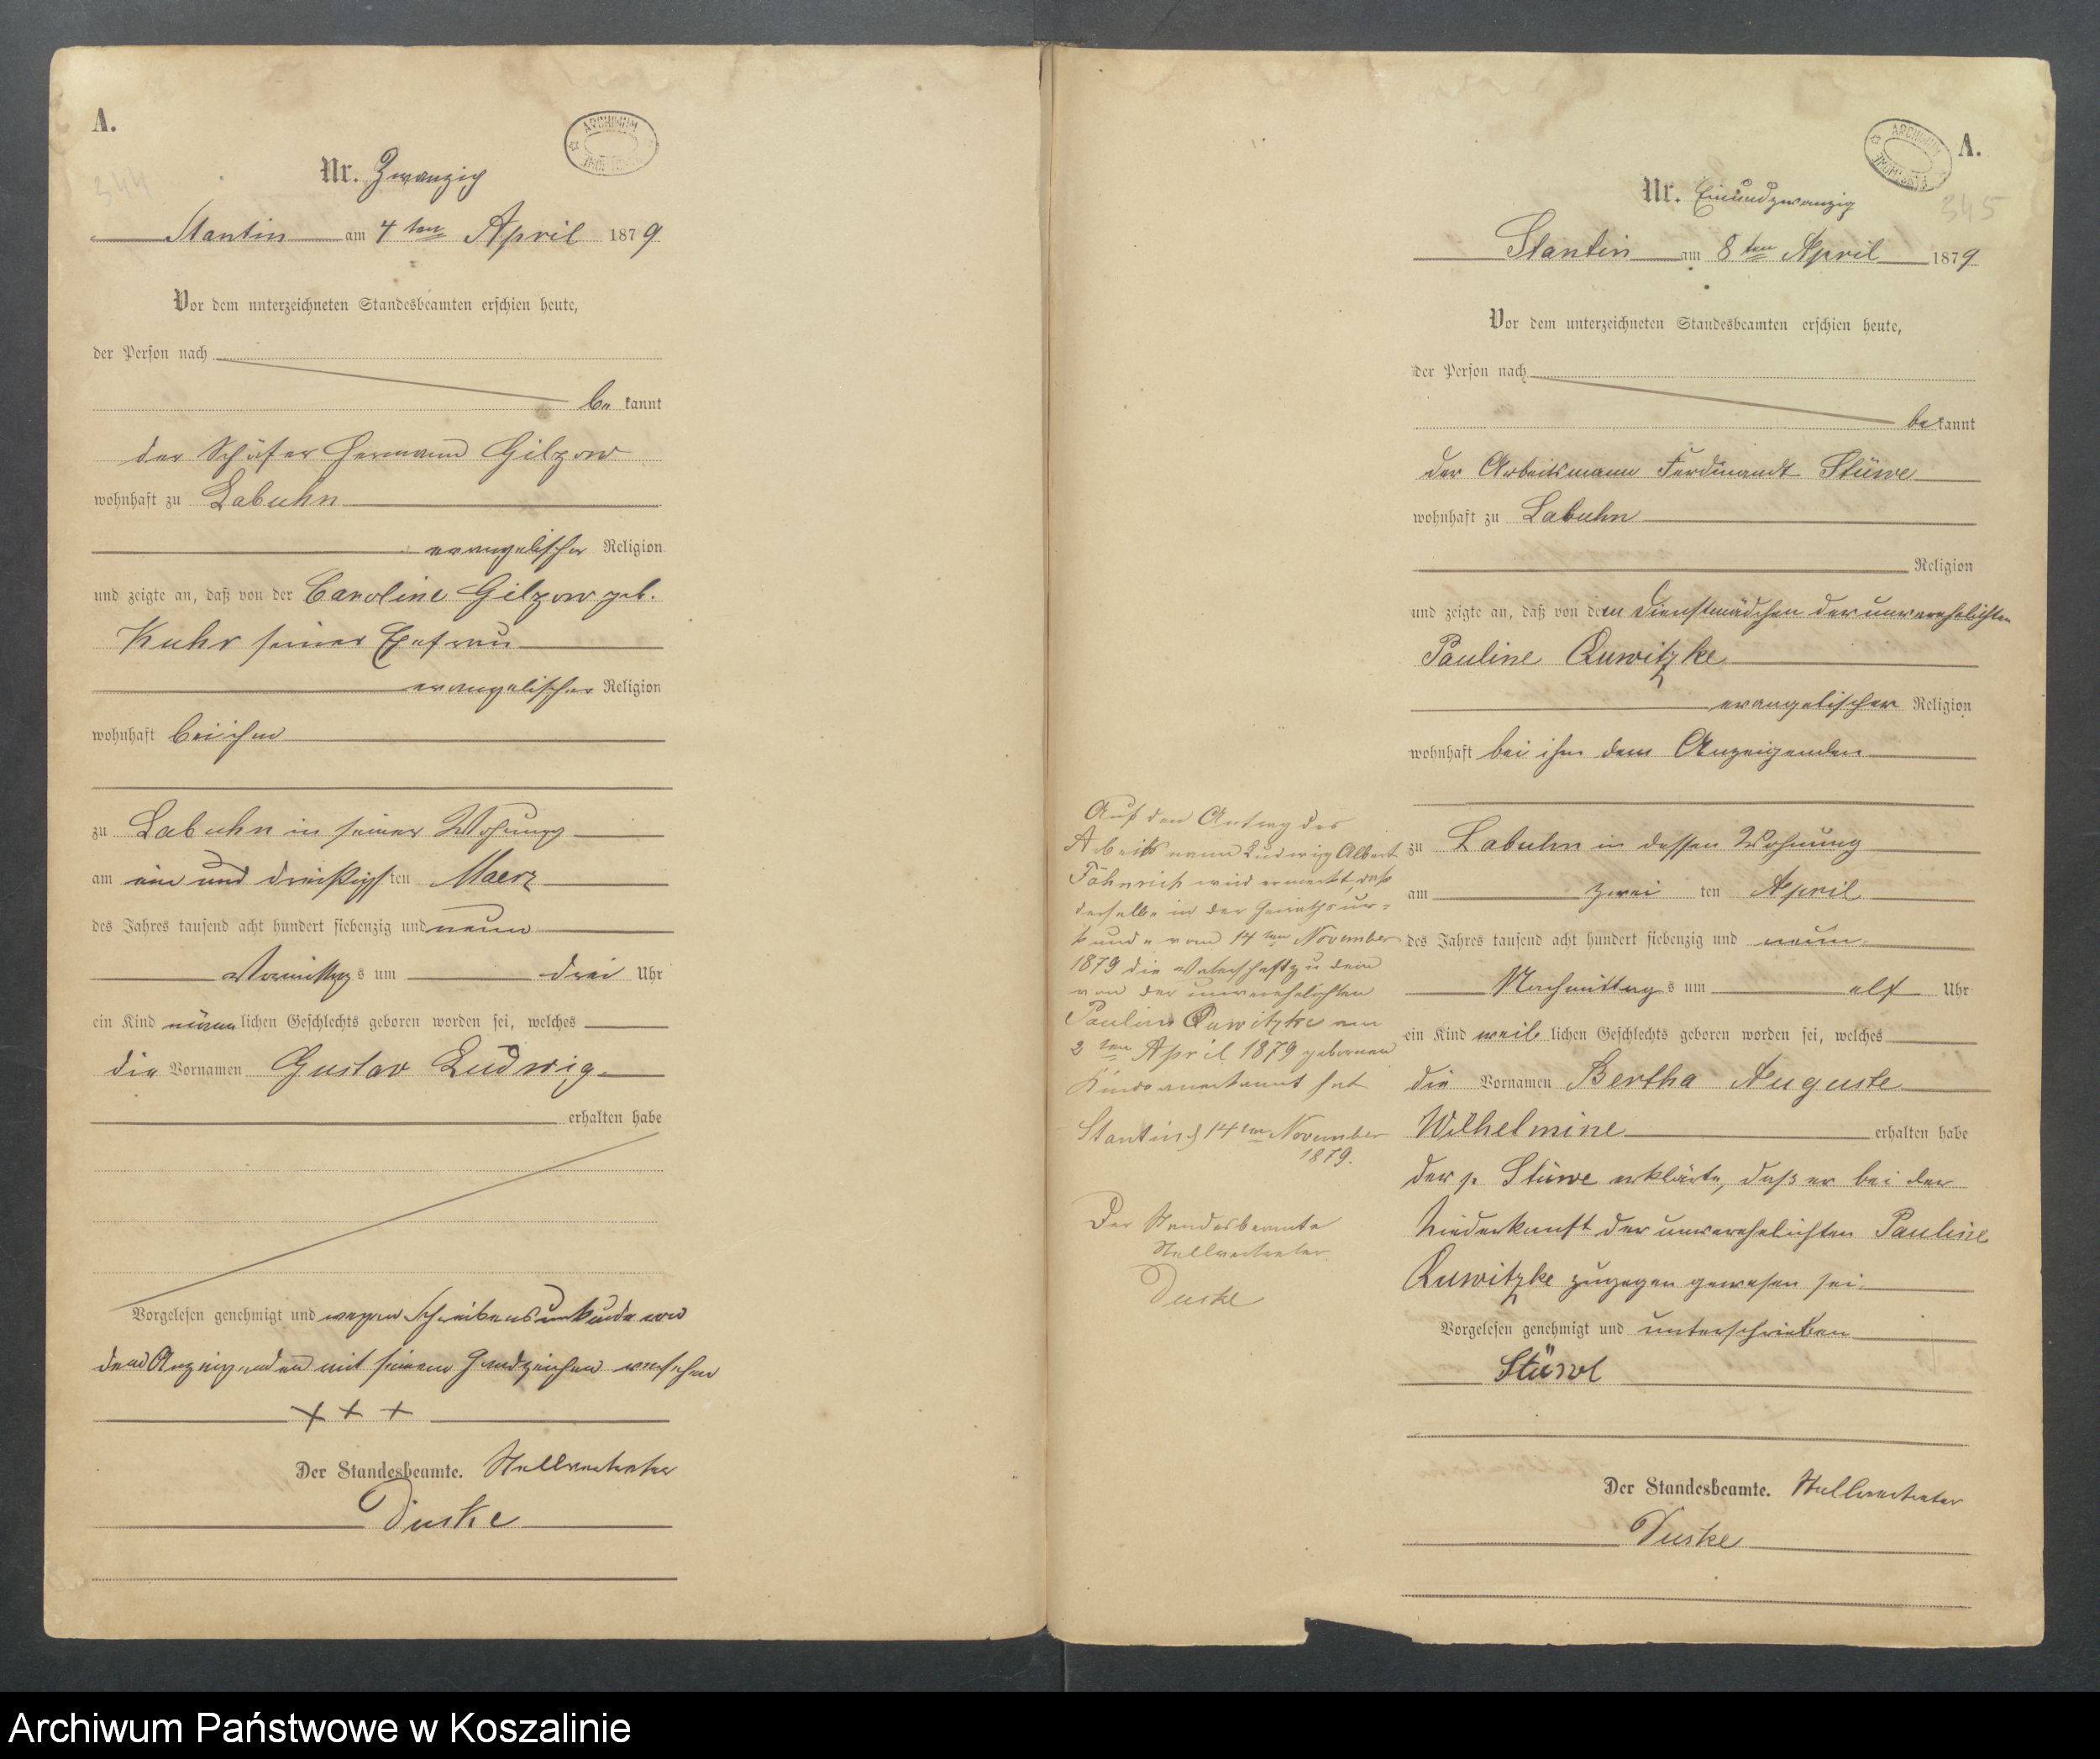 A.
ARCHIWUM
344
Nr. Zwanzig
Stantin am 4ten April 1879
Vor dem unterzeichneten Standesbeamten erschien heute,
der Person nach
be kannt
der Schäfer Hermann Gilzow
wohnhaft zu Labuhn
evangelischer Religion
und zeigte an, daß von der Caroline Gilzow geb.
Kuhr seiner Ehefrau
evangelischer Religion
wohnhaft bei ihm
zu Labuhn in seiner Wohnung
am ein und dreißigsten Maerz
des Jahres tausend acht hundert siebenzig und neun
Vormittags um drei Uhr
ein Kind männlichen Geschlechts geboren worden sei, welches
die Vornamen Gustav Ludwig
erhalten habe
Vorgelesen genehmigt und wegen Schreibensunkunde von
dem Anzeigenden mit seinem Handzeichen versehen
+ + +
Der Standesbeamte. Stellvertreter
Duske
ARCHIWUM
A.
345
Nr. Einundzwanzig
Stantin am 8ten April 1879
Vor dem unterzeichneten Standesbeamten erschien heute,
der Person nach
bekannt
der Arbeitsmann Ferdinandt Stüwe
wohnhaft zu Labuhn
Religion
und zeigte an, daß von dem Dienstmädchen der unverehelichten
Pauline Quwitzke
evangelischer Religion
wohnhaft bei ihm dem Anzeigenden
zu Labuhn in dessen Wohnung
am zwei ten April
des Jahres tausend acht hundert siebenzig und neun
Nachmittags um elf Uhr
ein Kind weiblichen Geschlechts geboren worden sei, welches
die Vornamen Bertha Auguste
Wilhelmine erhalten habe
der p. Stüwe erklärte, daß er bei der
Niederkunft der unverehelichten Pauline
Quwitzke zugegen gewesen sei
Vorgelesen genehmigt und unterschrieben
Stüwe
Der Standesbeamte. Stellvertreter
Duske
Auf den Antrag des
Arbeitsmann Ludwig Albert
Fähnrich wird vermerkt, daß
derselbe in der Heirathsur=
kunde vom 14ten November
1879 die Vaterschaft zu dem
von der unverehelichten
Pauline Quwitzke am
2ten April 1879 geborenen
Kinde anerkannt hat
Stantin d 14ten November
1879.
Der Standesbeamte
Stellvertreter.
Duske
Archiwum Państwowe w Koszalinie